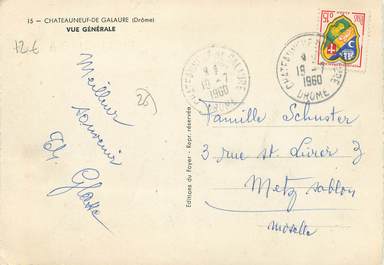 15 - CHATEAUNEUF-DE GALAURE (Drôme)
VUE GÉNÉRALE
12 €
Meilleur
souvenir
Glasse
25
Editions du Foyer - Repr. réservée
19-7
1960
DROME
19-7
1960
DROME
Famille Schuster
3 rue St. Livier 3
Metz Sablon
Moselle